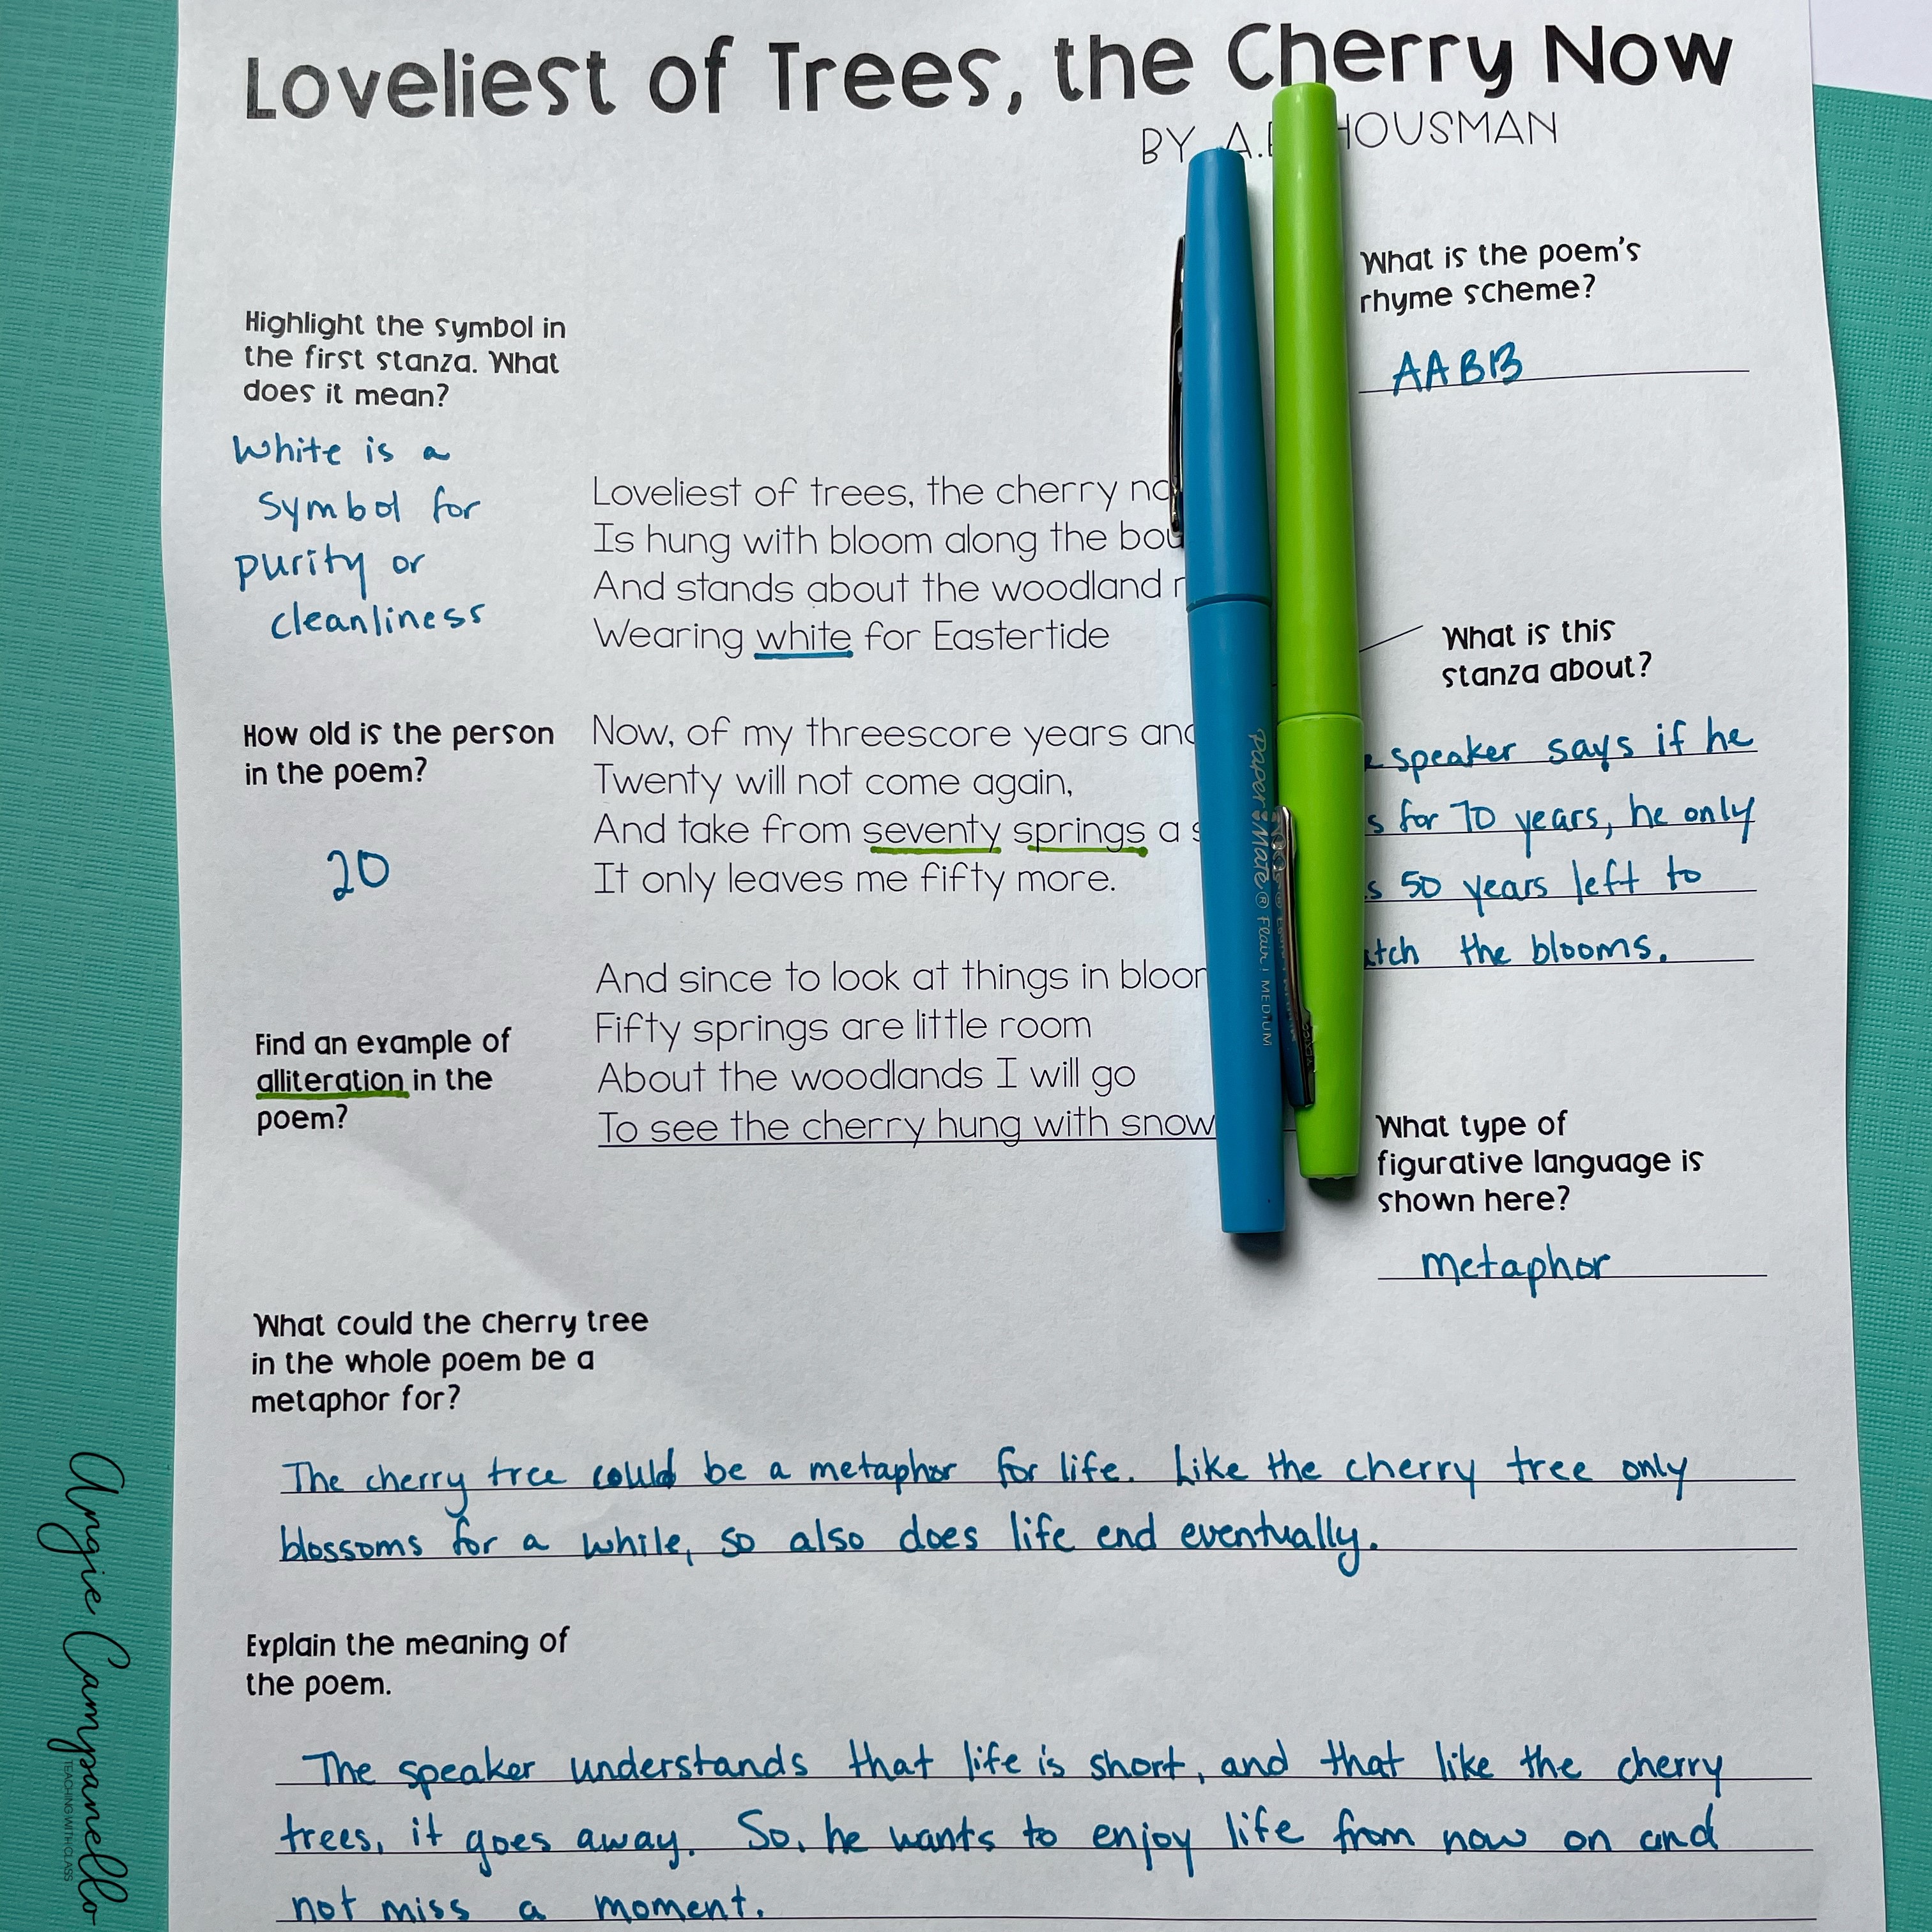 Loveliest of Trees, the Cherry Now
BY A. HOUSMAN
Highlight the symbol in
the first stanza. What
does it mean?
White is a
symbol for
purity or
cleanliness
What is the poem's
rhyme scheme?
AABB
Loveliest of trees, the cherry
Is hung with bloom along the
And stands about the woodland
Wearing white for Eastertide
What is this
stanza about?
How old is the person
in the poem?
20
Now, of my threescore years
Twenty will not come again,
And take from seventy springs a
It only leaves me fifty more.
speaker says if he
for 70 years, he only
50 years left to
the blooms.
And since to look at things in
Fifty springs are little room
About the woodlands I will go
To see the cherry hung with snow
Find an example of
alliteration in the
poem?
What type of
figurative language is
shown here?
metaphor
What could the cherry tree
in the whole poem be a
metaphor for?
The cherry tree could be a metaphor for life. Like the cherry tree only
blossoms for a while, so also does life end eventually.
Explain the meaning of
the poem.
The speaker understands that life is short, and that like the cherry
trees, it goes away. So, he wants to enjoy life from now on and
not miss a moment.
Paper Mate® Flair! MEDIUM
Angie Campanello
TEACHING WITH CLASS